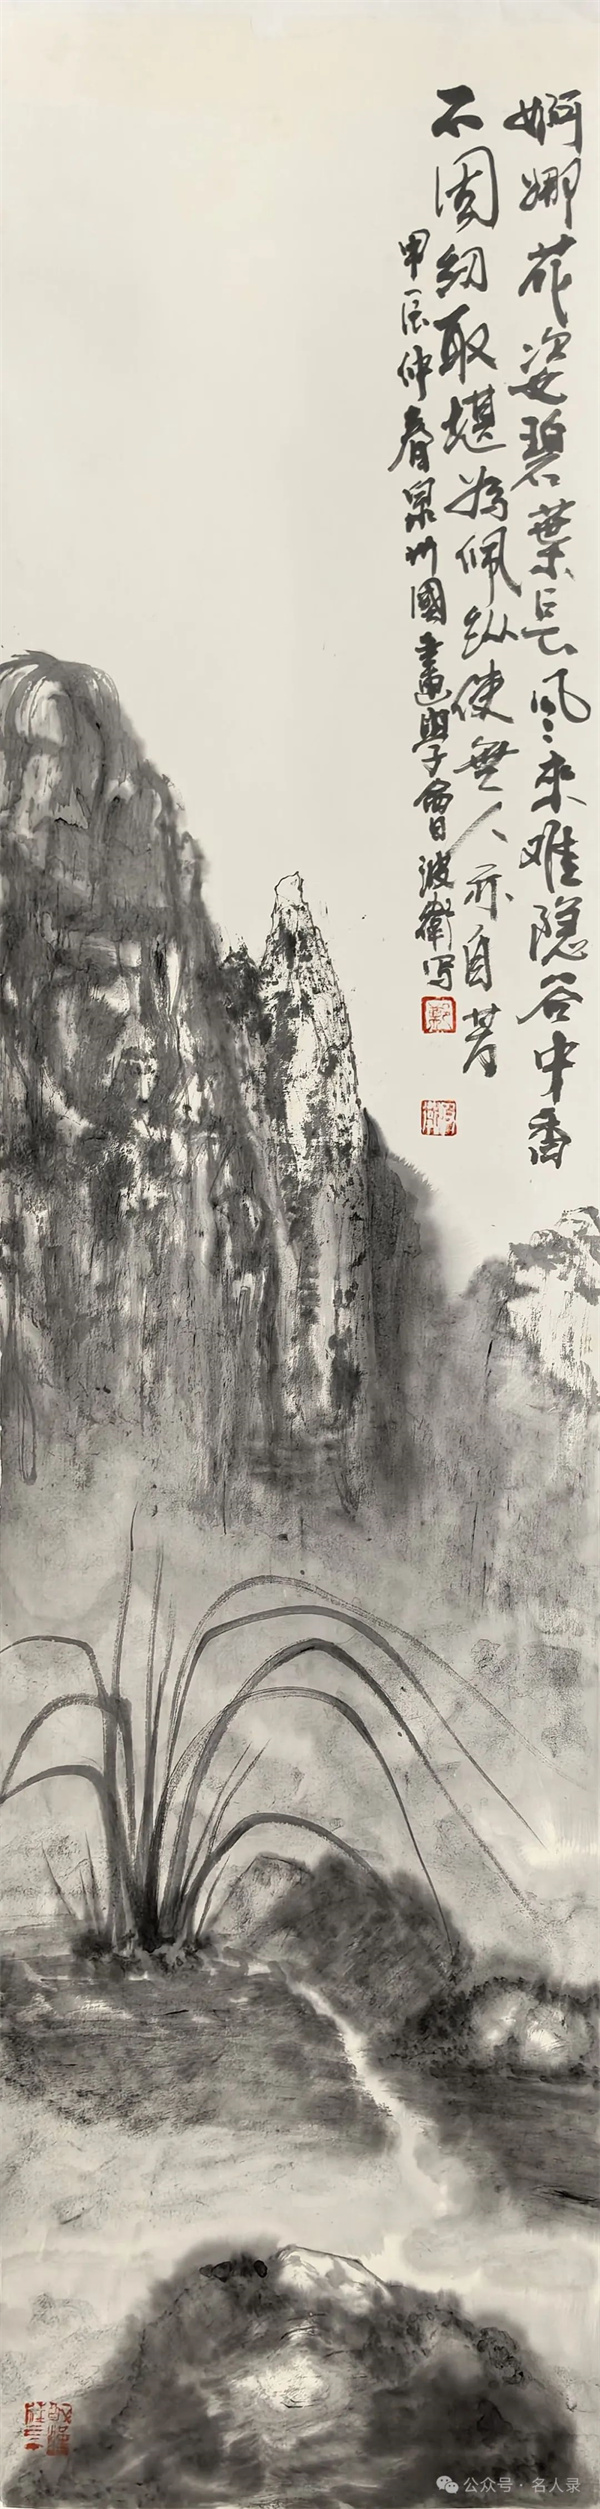 婀娜花姿碧葉長风来难隐谷中香
不因纫取堪為佩纵使無人亦自芳
甲辰仲春泉州國畫學會波衛写
公众号·名人录